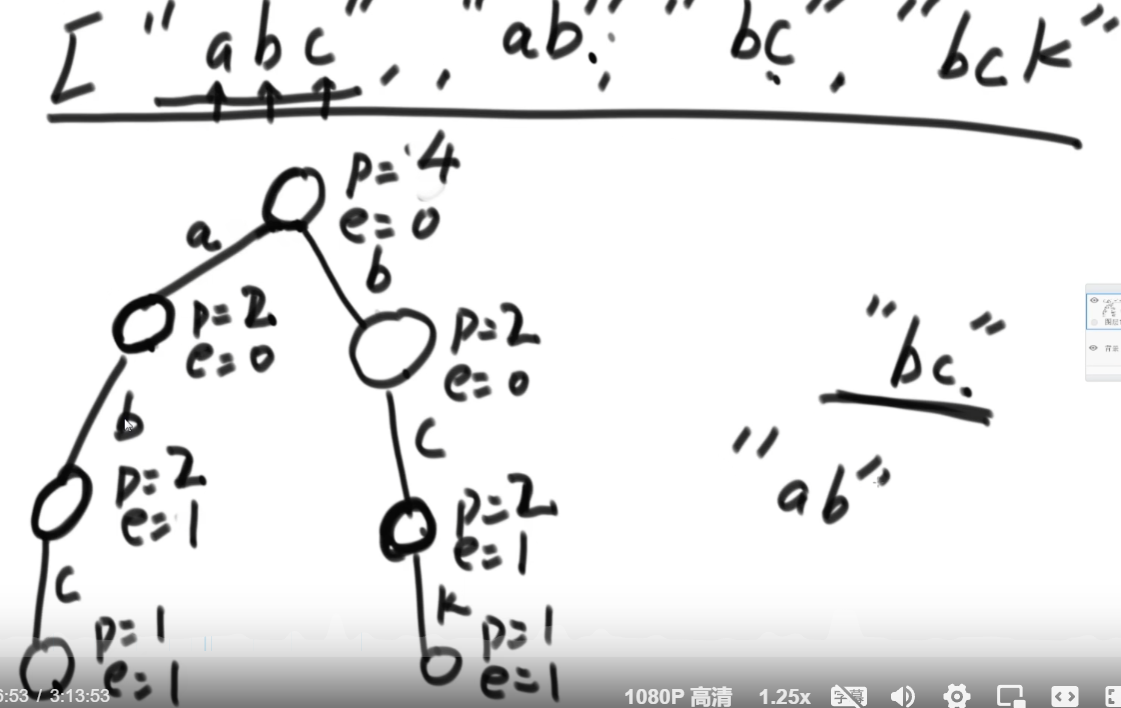 ["abc", "ab", "bc", "bck"
p=4
e=0
a
b
p=2
e=0
p=2
e=0
"bc"
b
c
"ab"
p=2
e=1
p=2
e=1
c
k
p=1
e=1
p=1
e=1
6:53 / 3:13:53
1080P 高清
1.25x
字幕